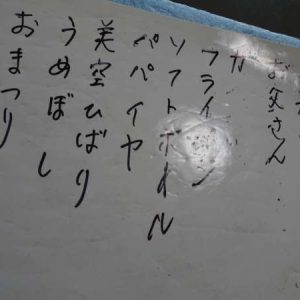 フライパン
ソフトボール
パパイヤ
美空ひばり
うめぼし
おまつり